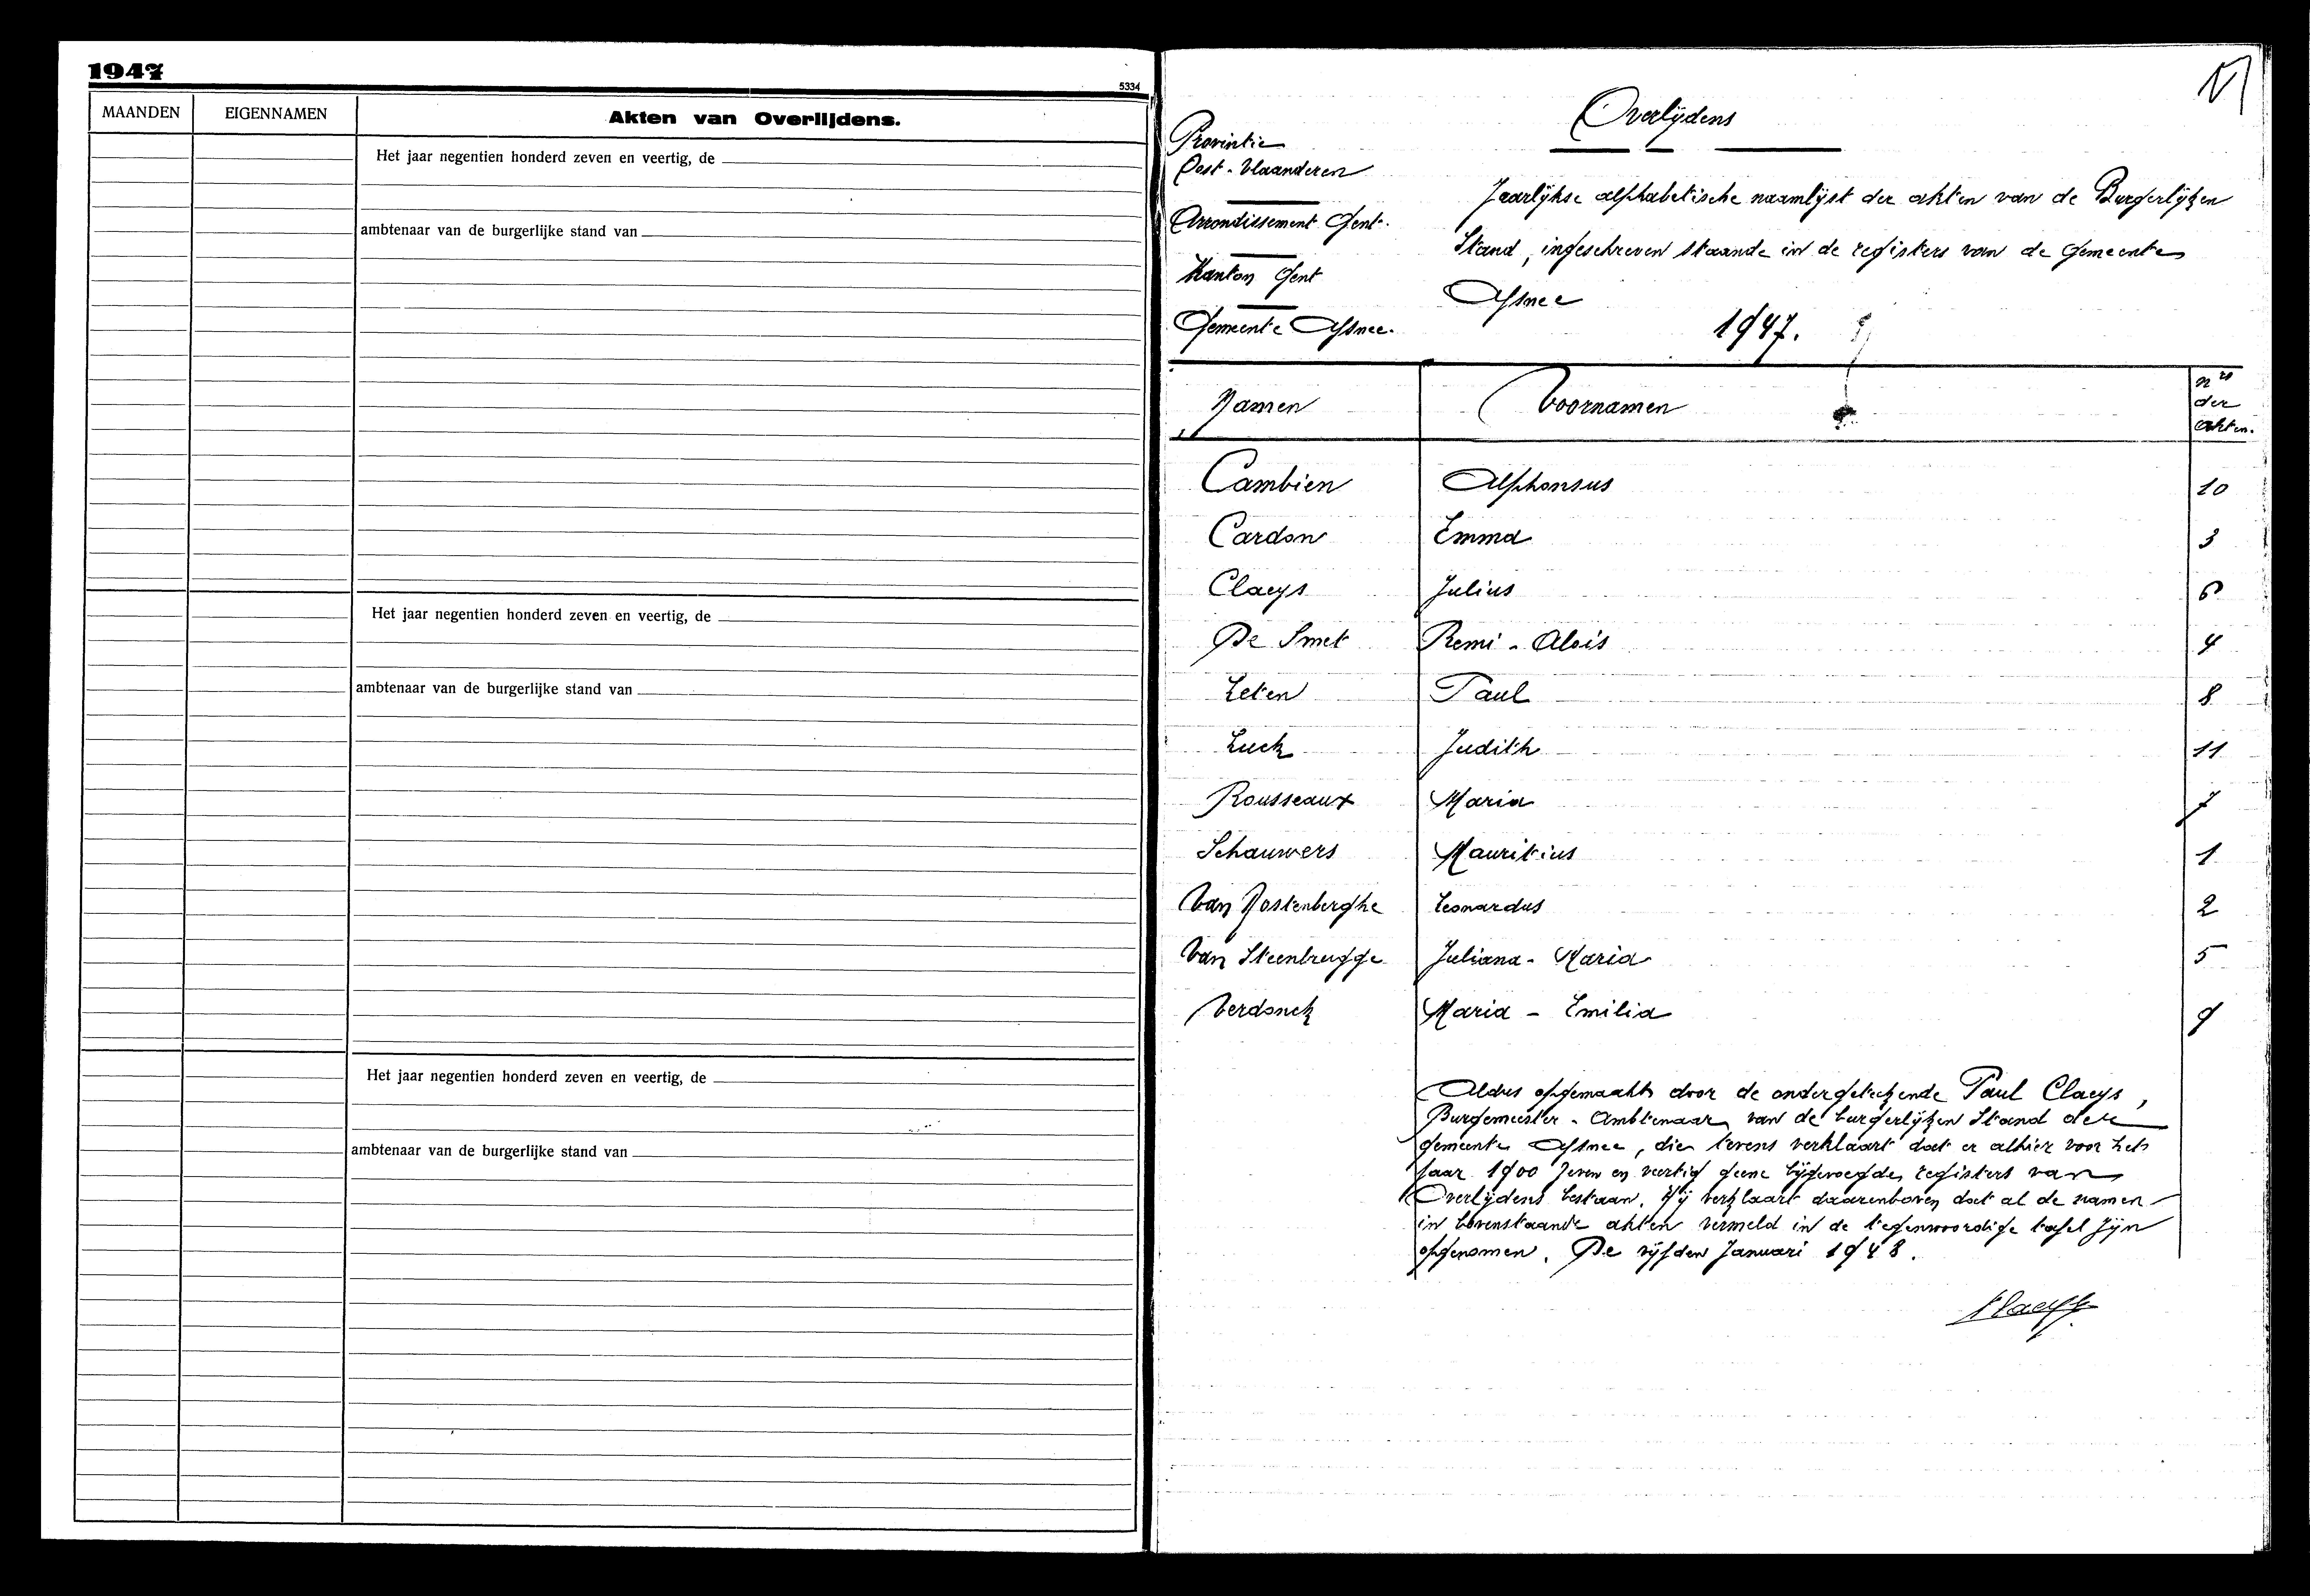 1947
5334
MAANDEN
EIGENNAMEN
Akten van Overlijdens.
Het jaar negentien honderd zeven en veertig, de
ambtenaar van de burgerlijke stand van
Het jaar negentien honderd zeven en veertig, de
ambtenaar van de burgerlijke stand van
Het jaar negentien honderd zeven en veertig, de
ambtenaar van de burgerlijke stand van
Overlijdens
Provintie
Oost-Vlaanderen
Arrondissement Gent.
Kanton Gent
Gemeente Afsnee.
Jaarlijkse alphabetische naamlijst der akten van de Burgerlijken
Stand, ingeschreven staande in de registers van de Gemeente
Afsnee
1947.
Namen Voornamen nrs der akten.
Cambien Alphonsus 10
Cardon Emma 3
Claeys Julius 6
De Smet Remi - Alois 4
Leten Paul 8
Luck Judith 11
Rousseaux Maria 7
Schauwers Mauritius 1
Van Oostenberghe Leonardus 2
Van Steenbrugge Juliana - Maria 5
Verdonck Maria - Emilia 9
Aldus opgemaakt door de ondergetekende Paul Claeys,
Burgemeester - Ambtenaar van de burgerlijken Stand der
gemeente Afsnee, die tevens verklaart dat er alhier voor het
jaar 1900 zeven en veertig geene bijgevoegde registers van
Overlijdens bestaan. Hij verklaart daarenboven dat al de namen
in bovenstaande akten vermeld in de tegenwoordige tafel zijn
opgenomen. De vijfden Januari 1948.
Claeys